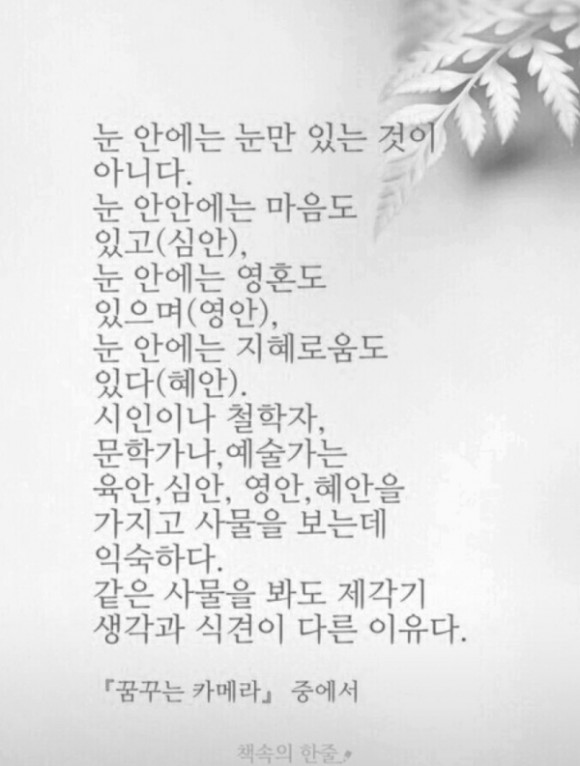 눈 안에는 눈만 있는 것이
아니다.
눈 안안에는 마음도
있고(심안),
눈 안에는 영혼도
있으며(영안),
눈 안에는 지혜로움도
있다(혜안).
시인이나 철학자,
문학가나,예술가는
육안,심안, 영안,혜안을
가지고 사물을 보는데
익숙하다.
같은 사물을 봐도 제각기
생각과 식견이 다른 이유다.
『꿈꾸는 카메라』 중에서
책속의 한줄